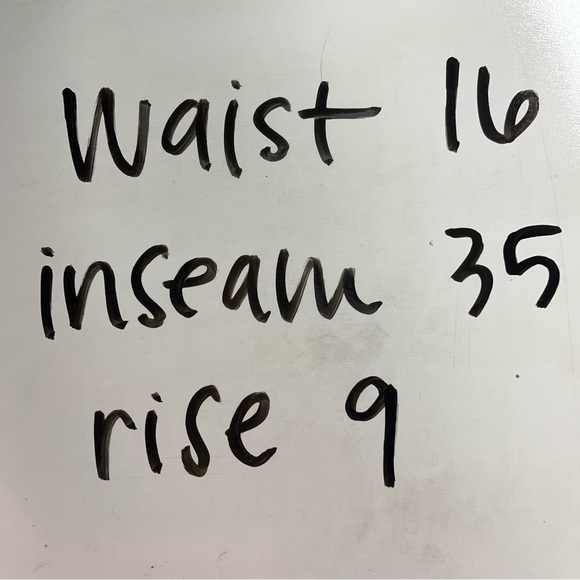 Waist 16
inseam 35
rise 9